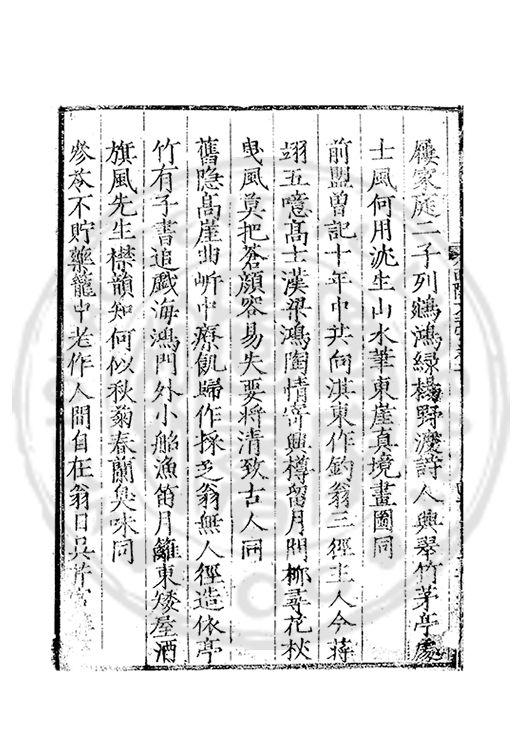 家庭二子列鵷鴻綠楊野渡詩人興翠竹茅亭處
士風何用沈生山水華東崖真境畫圖同
前盟曾記十年中共向淇東作釣翁三徑主人今蔣
翊五噫高士漢梁鴻陶情寄興樽留月問柳尋花秋
曳風莫把蒼顔容易失要將清致古人同
舊隐高崖曲㟁中療飢歸作採芝翁無人徑造依亭
竹有子書追戲海鴻門外小船漁笛月籬東矮屋酒
旗風先生襟韻知何似秋菊春蘭臭味同
參苓不貯藥籠中老作人間自在翁日吳許